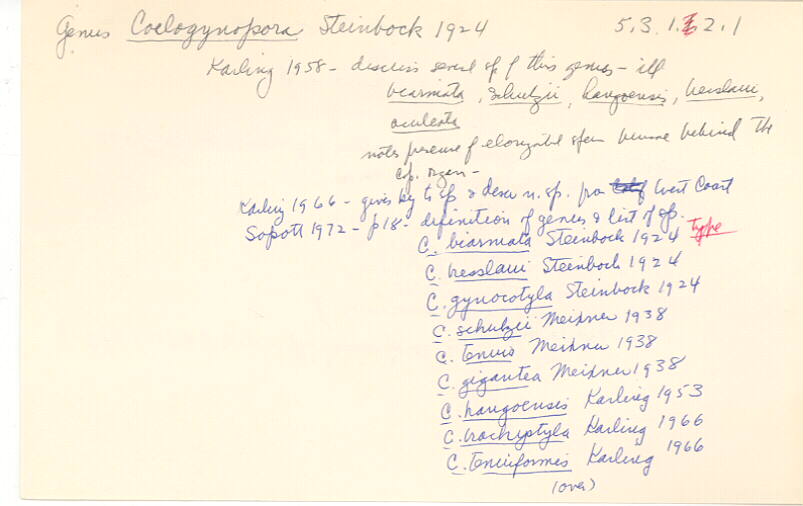 Genus Coelogynopora Steinbock 1924 5.3.1.2.1
Karling 1958 - discuss several sp of this genus - ill
biarmata, schulzii, hangoensis, hesslandi,
aculeata
notes presence of elongated behind the
cop. organ -
Karling 1966 - gives key to sp & descr n. sp. from West Coast
Sopott 1972 - p18 - definition of genus & list of sp.
C. biarmata Steinbock 1924 type
C. hesslandi Steinbock 1924
C. gynocotyla Steinbock 1924
C. schulzii Meixner 1938
C. tenuis Meixner 1938
C. gigantea Meixner 1938
C. hangoensis Karling 1953
C. brachystyla Karling 1966
C. tenuiformis Karling 1966
(over)